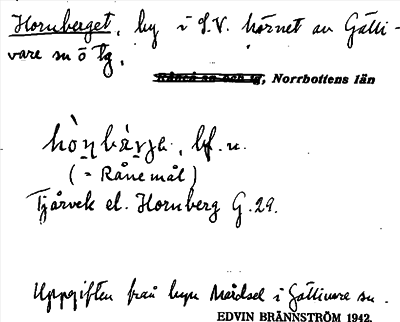 Hornberget, by i S.V. hörnet av Gälli-
vare sn o tg,
Råneå sn och tg, Norrbottens län
hò̱ṇbàrja, bf. n.
(= Rånemål)
Tjårvek el. Hornberg G.29.
Uppgiften från byn Mårdsel i Gällivare sn.
EDVIN BRÄNNSTRÖM 1942.